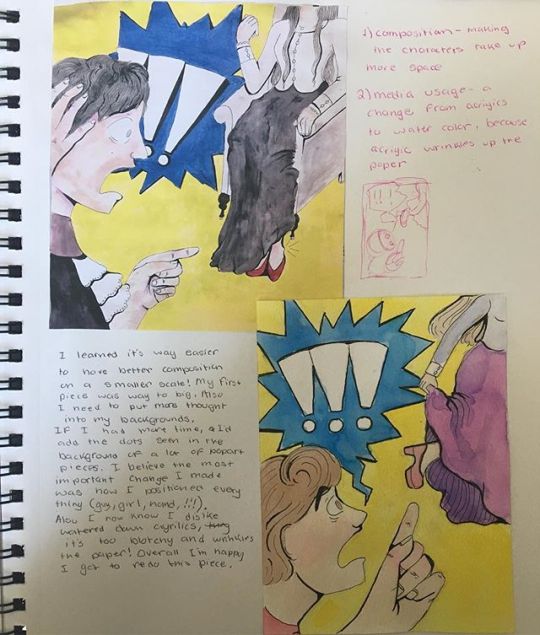 !!!
1) composition - making
the charaters take up
more space
2) media usage - a
change from acrylics
to water color, because
acrylic wrinkles up the
paper
!!!
I learned it's way easier
to have better composition
on a smaller scale! My first
piece was way to big. Also
I need to put more thought
into my backgrounds.
If I had more time, I'd
add the dots seen in the
background of a lot of popart
pieces. I believe the most
important change I made
was how I positioned every
thing (guy, girl, hand, !!!).
Also I now know I dislike
watered down cyrilics,
it's too blotchy and wrinkles
the paper! Overall I'm happy
I got to redo this piece.
!!!